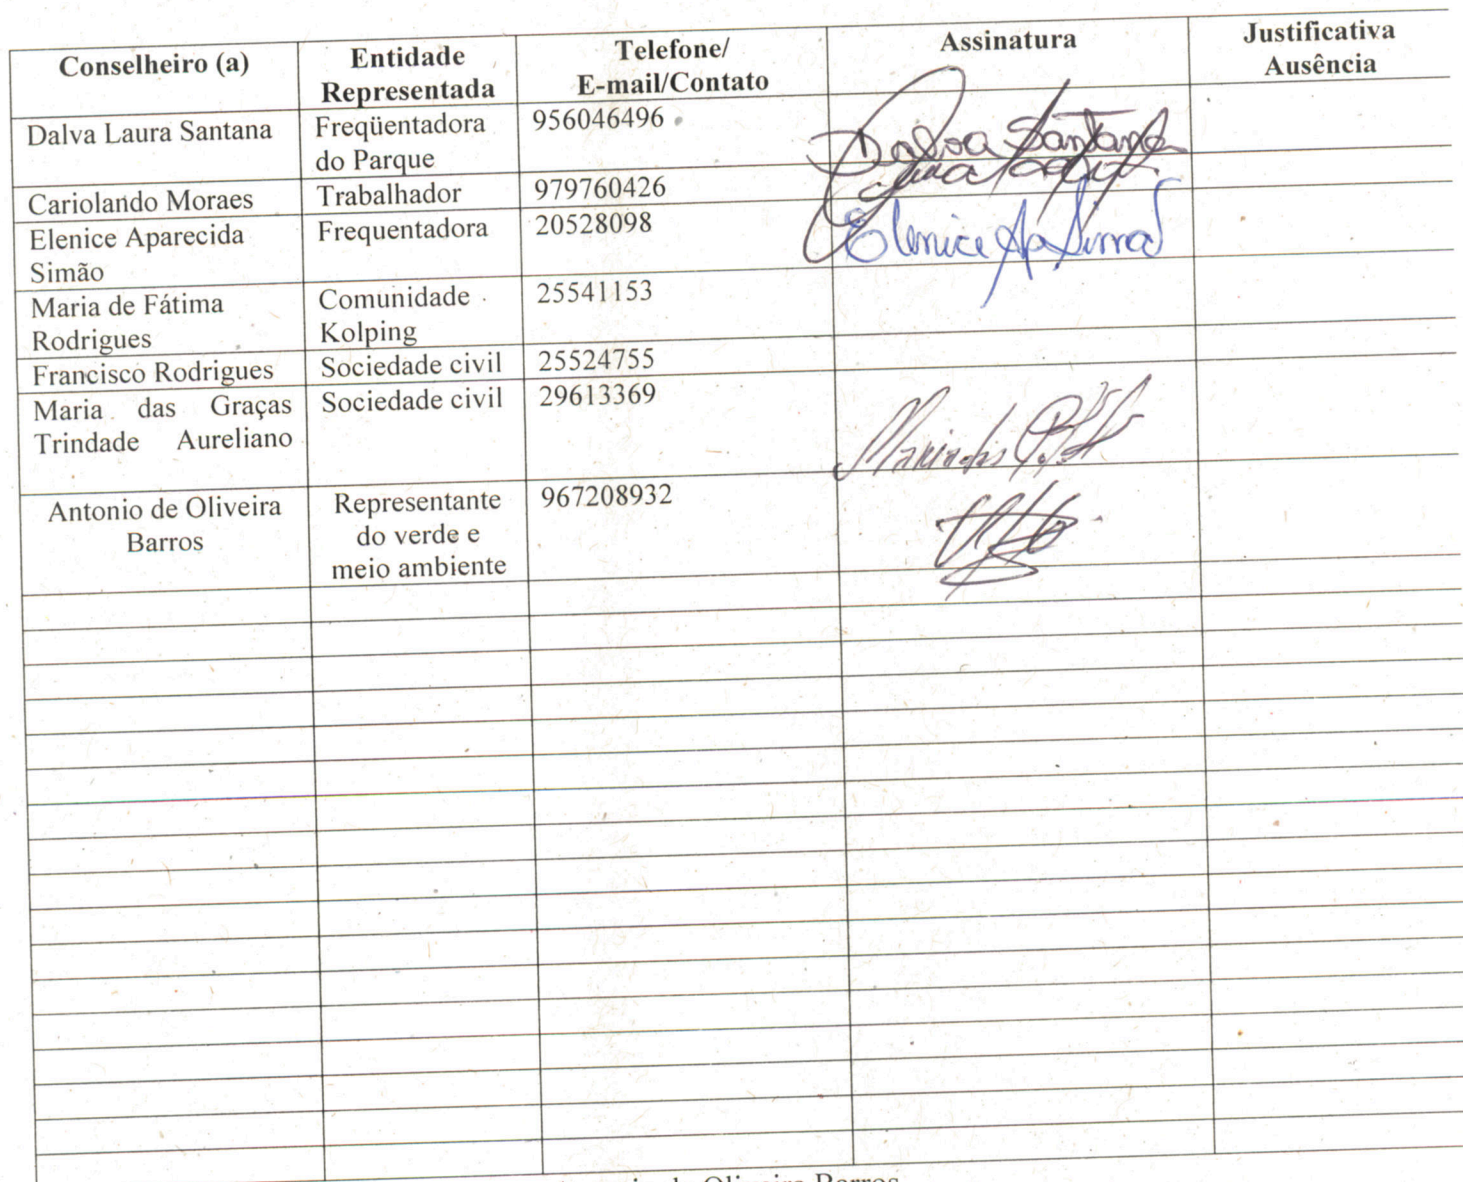 Conselheiro (a) Entidade Representada Telefone/ E-mail/Contato Assinatura Justificativa Ausência
Dalva Laura Santana Freqüentadora do Parque 956046496 Dalva Santana
Cariolando Moraes Trabalhador 979760426
Elenice Aparecida Simão Frequentadora 20528098 Elenice Ap
Maria de Fátima Rodrigues Comunidade Kolping 25541153
Francisco Rodrigues Sociedade civil 25524755
Maria das Graças Trindade Aureliano Sociedade civil 29613369
Antonio de Oliveira Barros Representante do verde e meio ambiente 967208932
de Oliveira Barros